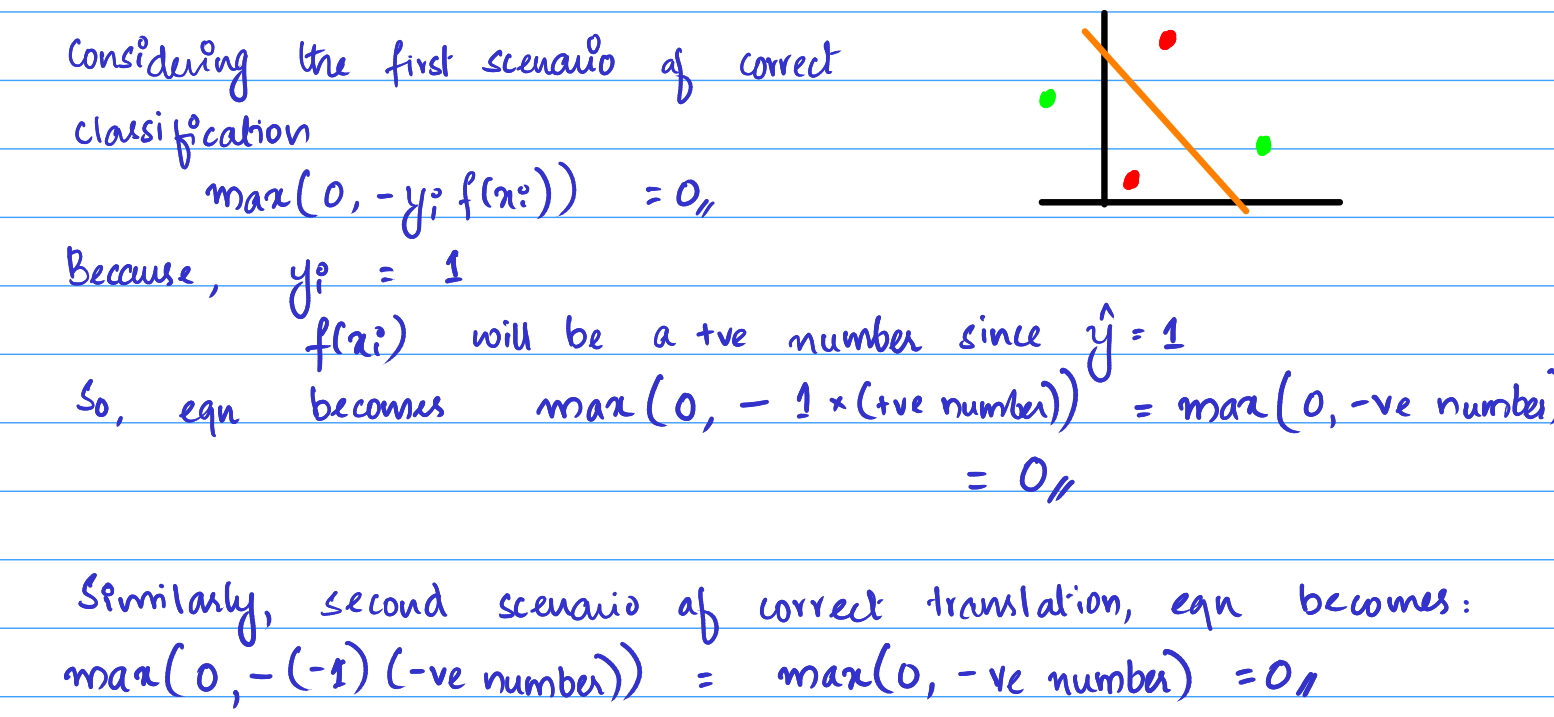 Considering the first scenario of correct
classification
max(0, -yᵢ f(xᵢ)) = 0//
Because, yᵢ = 1
f(xᵢ) will be a +ve number since ŷ = 1
So, eqn becomes max(0, - 1 × (+ve number)) = max(0, -ve number)
= 0//
Similarly, second scenario of correct translation, eqn becomes:
max(0, -(-1) (-ve number)) = max(0, -ve number) = 0//